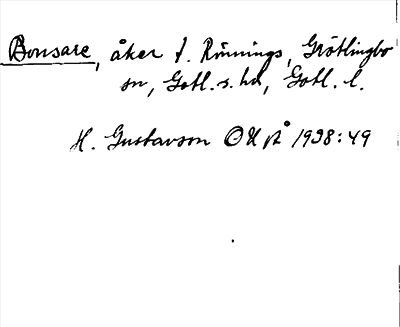 Bonsare, åker t. Rönnings, Grötlingbo
sn, Gotl. s. hd, Gotl. l.
H. Gustavson OUÅ 1938:49